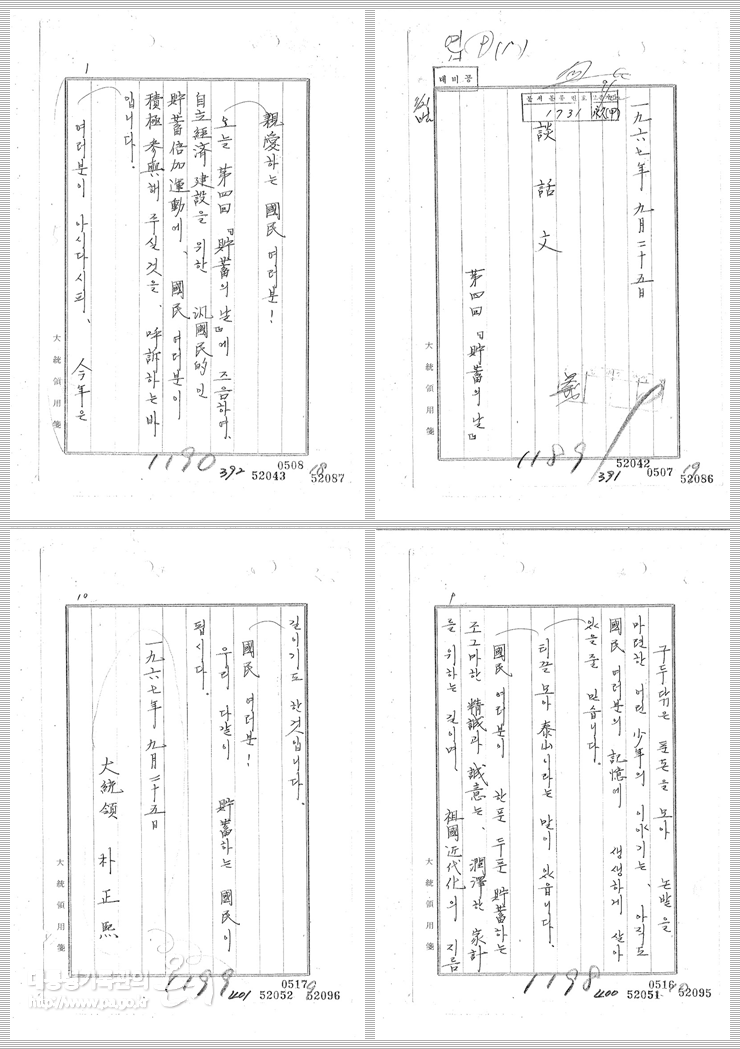 대비공
문서등록번호
1731
一九六七年 九月 二十五日
談話文
第四回 『貯蓄의 날』
大統領用箋
1189
391
52042
0507
52086
1
親愛하는 國民 여러분!
오늘 第四回 『貯蓄의 날』에 즈음하여,
自立經済建設을 위한 汎國民的인
貯蓄倍加運動에, 國民 여러분이
積極 參與해 주실 것을, 呼訴하는 바
입니다.
여러분이 아시다시피, 今年은
大統領用箋
1190
392
52043
0508
52087
9
구두닦은 푼돈을 모아 논밭을
마련한 어떤 少年의 이야기는, 아직도
國民 여러분의 記憶에 생생하게 살아
있을 줄 믿습니다.
티끌 모아 泰山이라는 말이 있읍니다.
國民 여러분이 한푼 두푼 貯蓄하는
조그마한 精誠과 誠意는, 潤澤한 家計
를 위하는 길이며, 祖國近代化의 지름
大統領用箋
1198
400
52051
0516
52095
10
길이기도 한것입니다.
國民 여러분!
우리 다같이 貯蓄하는 國民이
됩시다.
一九六七年 九月 二十五日
大統領 朴正熙
大統領用箋
1199
401
52052
0517
52096
대통령기록관의
http://www.pa.go.kr